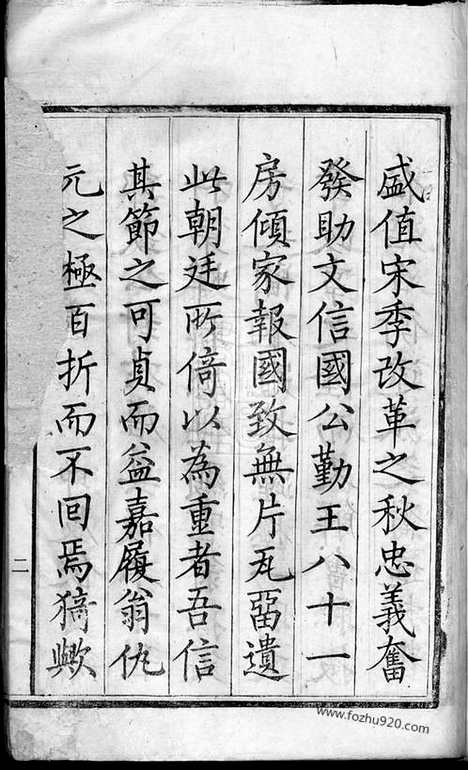 盛值宋季改革之秋忠義奮
發助文信國公勤王八十一
房傾家報國致無片瓦畱遺
此朝廷所倚以為重者吾信
其節之可貞而益嘉履翁仇
元之極百折而不回焉猗歟
二
www.fozhu920.com